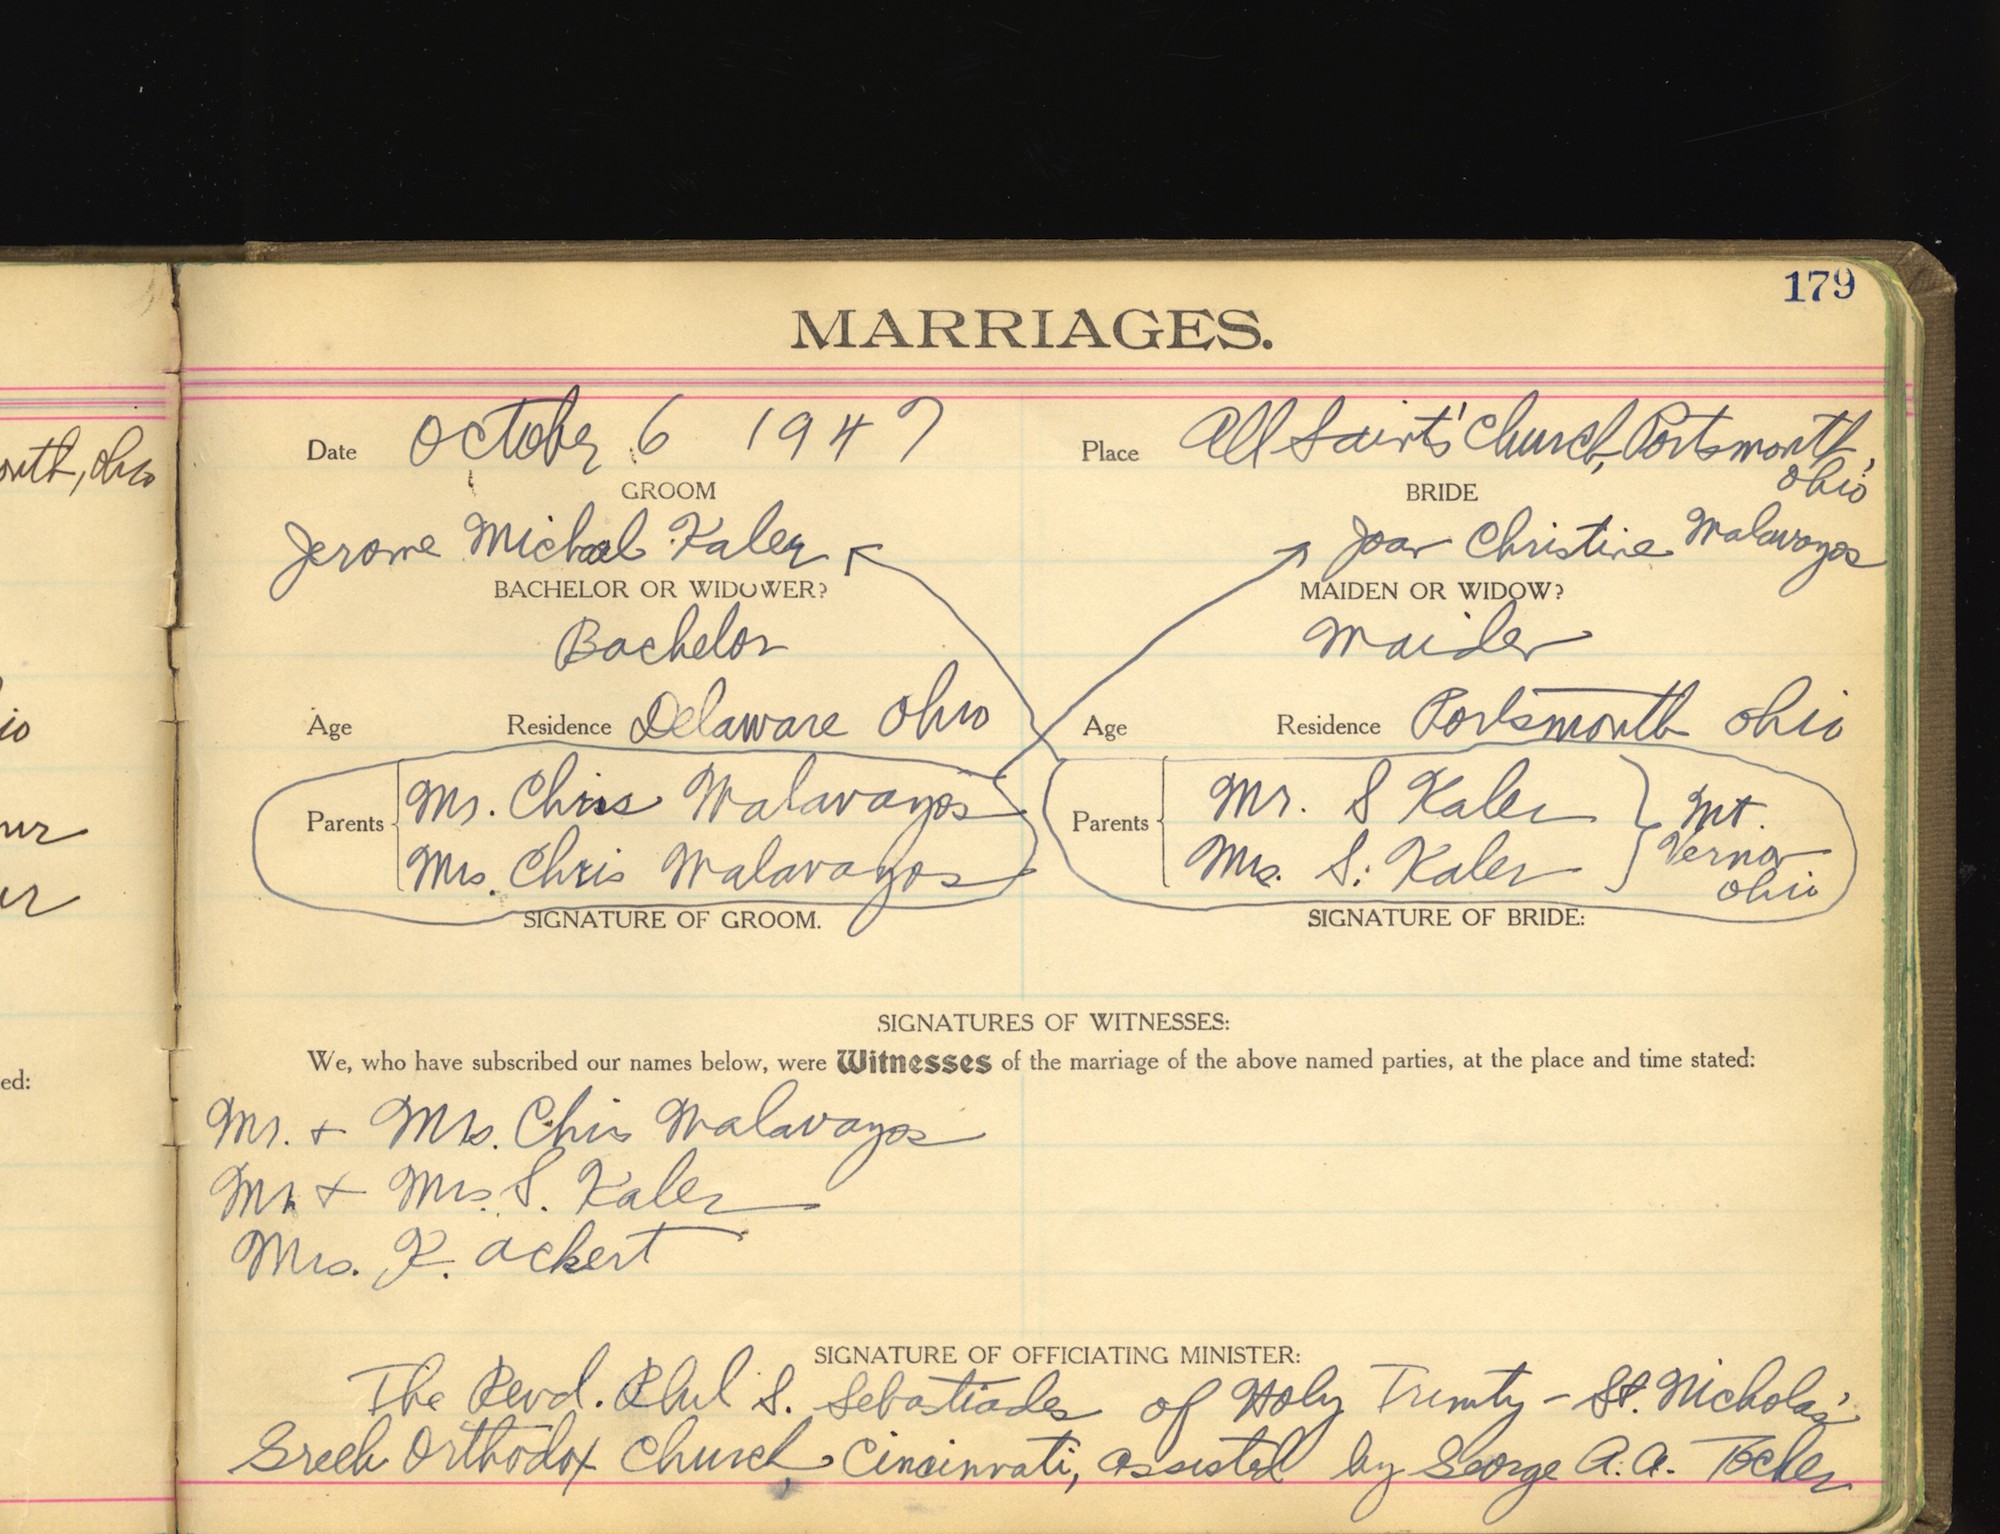 179
MARRIAGES.
Date October 6 1947 Place All Saints' Church, Portsmouth,
Ohio
GROOM BRIDE
Jerome Michael Kaler Joan Christine Malavazos
BACHELOR OR WIDOWER? MAIDEN OR WIDOW?
Bachelor Maiden
Age Residence Delaware Ohio Age Residence Portsmouth Ohio
Parents Mr. Chris Malavazos Parents Mr. S Kaler Mt.
Vernon
Mrs. Chris Malavazos Mrs. S. Kaler Ohio
SIGNATURE OF GROOM. SIGNATURE OF BRIDE:
SIGNATURES OF WITNESSES:
We, who have subscribed our names below, were Witnesses of the marriage of the above named parties, at the place and time stated:
Mr. + Mrs. Chris Malavazos
Mr. + Mrs. S. Kaler
Mrs. K. Ackert
SIGNATURE OF OFFICIATING MINISTER:
The Revd. Phil S. Sebastiades of Holy Trinity - St. Nicholas'
Greek Orthodox Church, Cincinnati, assisted by George A. A. Tocher
outh, Ohio
io
ed: